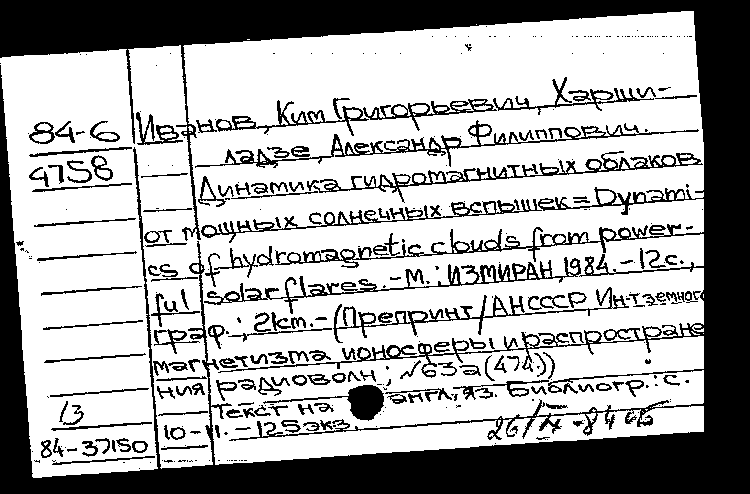 84-6 Иванов, Ким Григорьевич, Харши-
4758 ладзе, Александр Филиппович.
Динамика гидромагнитных облаков
от мощных солнечных вспышек = Dynami-
cs of hydromagnetic clouds from power-
ful solar flares. - М.: ИЗМИРАН, 1984. - 12 с.,
граф.; 21 cm. - (Препринт/АНСССР, Ин-т земного
магнетизма, ионосферы и распростране
ния радиоволн; №63a (474))
13 Текст на англ. яз. Библиогр.: с.
84-37150 10-11. - 125 экз.